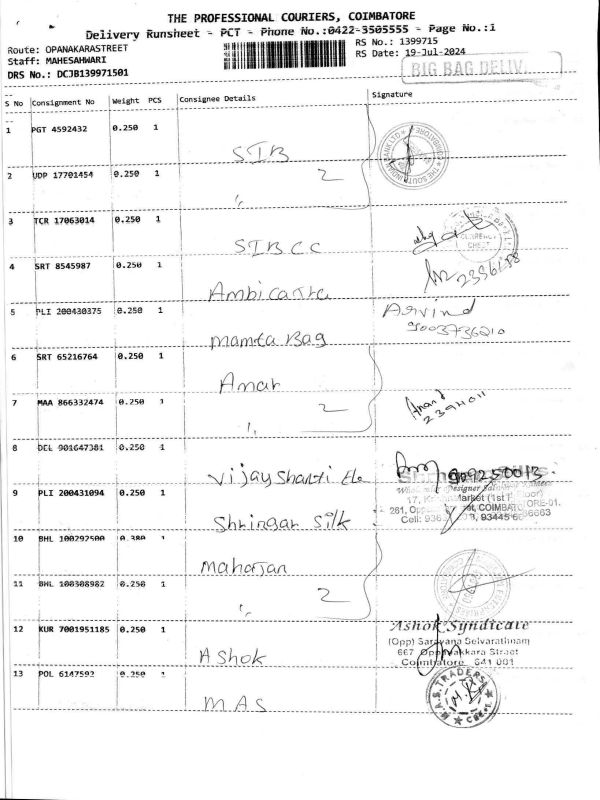 THE PROFESSIONAL COURIERS, COIMBATORE
Delivery Runsheet - PCT - Phone No.:0422-3505555 - Page No.:1
Route: OPANAKARASTREET
RS No.: 1399715
Staff: MAHESAHWARI
RS Date: 19-Jul-2024
DRS No.: DCJB139971501
BIG BAG DELIV.
S No Consignment No Weight PCS Consignee Details Signature
1 PGT 4592432 0.250 1
SIB
2 UDP 17701454 0.250 1
2
"
3 TCR 17063014 0.250 1
SIBCC
CURRENCY CHEST
4 SRT 8545987 0.250 1
Ambica
5 PLI 200430375 0.250 1
Arvind
9003736210
Mamta Bag
6 SRT 65216764 0.250 1
Amar
7 MAA 866332474 0.250 1
2
Anand
2394011
"
8 DEL 901647381 0.250 1
Vijay Shanti Ele
9 PLI 200431094 0.250 1
Shringar Silk
10 BHL 100292500 0.380 1
Maharjan
11 BHL 100308982 0.250 1
2
"
12 KUR 7001951185 0.250 1
Ashok Syndicate
(Opp) Saravana Selvarathnam
667 Oppanakkara Street
Coimbatore 641 001
Ashok
13 POL 6147592 0.250 1
M.A.S. TRADERS
CBE-1
M.A.S